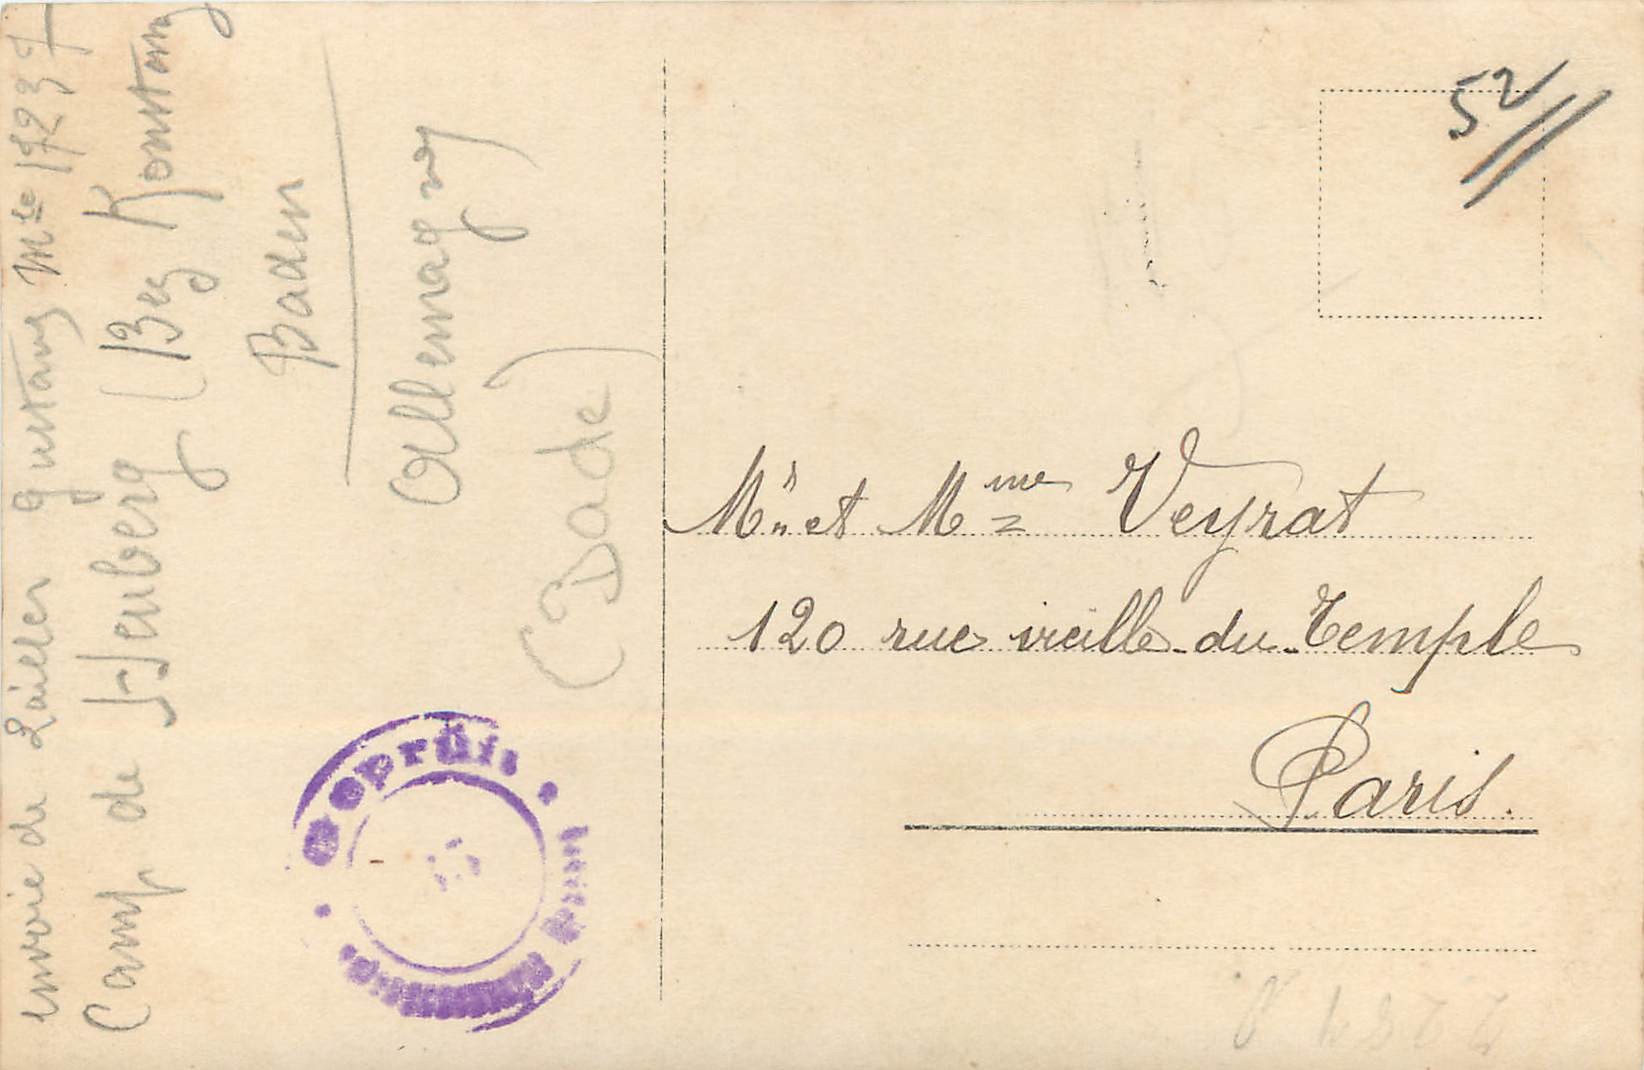 envoie de Lailler Gustang Mle 17237
Camp de Heuberg (Bez Konstanz
Baden
Allemagne
(Bade)
Geprüft
52
Mr et Mme Veyrat
120 rue vieille du Temple
Paris.